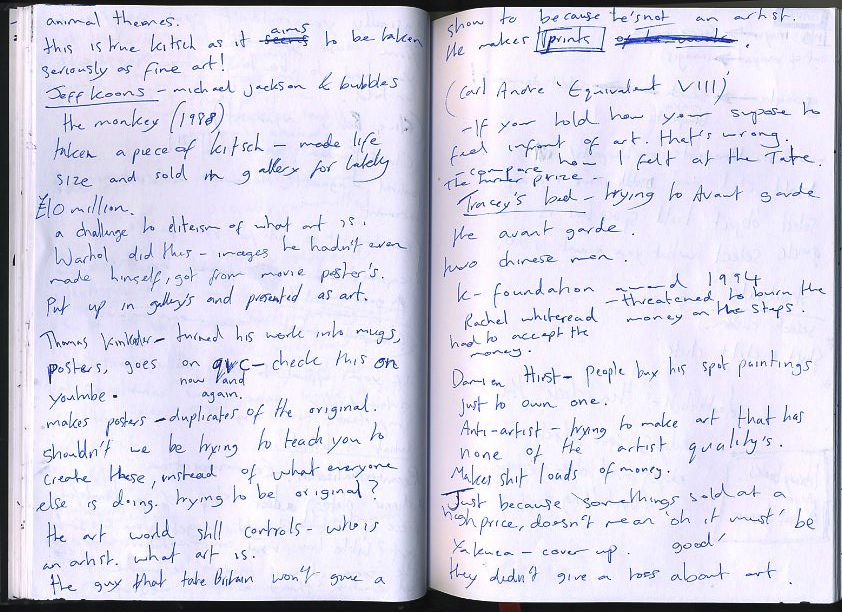 animal themes.
this is true kitsch as it aims seems to be taken
seriously as fine art!
Jeff Koons - michael jackson & bubbles
the monkey (1998)
taken a piece of kitsch - made life
size and sold in gallery for lately
£10 million.
a challenge to eliteism of what art is.
Warhol did this - images he hadn't even
made himself, got from movie poster's.
Put up in gallery's and presented as art.
Thomas Kinkader - turned his work into mugs,
posters, goes on qvc - check this on
youtube. now and again.
makes posters - duplicates of the original.
shouldn't we be trying to teach you to
create these, instead of what everyone
else is doing. trying to be original?
the art world still controls - who is
an artist. what art is.
the guy that take Britain won't give a
show to because he's not an artist.
He makes prints
(Carl Andre 'Equivalent VIII')
- If your told how your supose to
feel infront of art. that's wrong.
- compare how I felt at the Tate.
The turner prize -
Tracey's bed - trying to Avant garde
the avant garde.
two chinese men.
K - foundation award 1994
- threatened to burn the
Rachel whiteread money on the steps.
had to accept the
money.
Damien Hirst - people buy his spot paintings
just to own one.
Anti-artist - trying to make art that has
none of the artist quality's.
Makes shit loads of money.
Just because somethings sold at a
high price, doesn't mean 'oh it must be
good'
Yakuza - cover up.
they didn't give a toss about art.